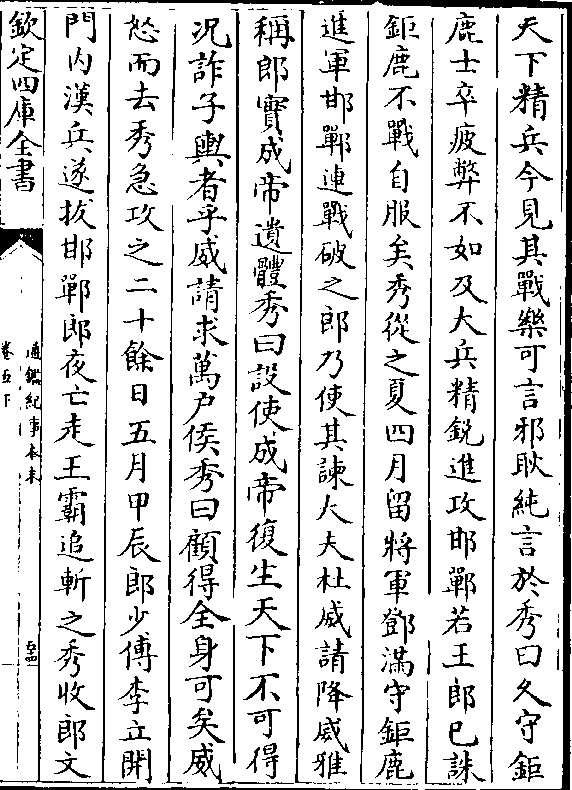 天下精兵今見其戰樂可言邪耿純言於秀曰久守鉅
鹿士卒疲弊不如及大兵精銳進攻邯鄲若王郎已誅
鉅鹿不戰自服矣秀從之夏四月留將軍鄧滿守鉅鹿
進軍邯鄲連戰破之郎乃使其諫大夫杜威請降威雅
稱郎實成帝遺體秀曰設使成帝復生天下不可得
況詐子輿者乎威請求萬户侯秀曰顧得全身可矣威
怒而去秀急攻之二十餘日五月甲辰郎少傅李立開
門内漢兵遂拔邯鄲郎夜亡走王霸追斬之秀收郎文
欽定四庫全書
通鑑紀事本末
卷五下
五十四